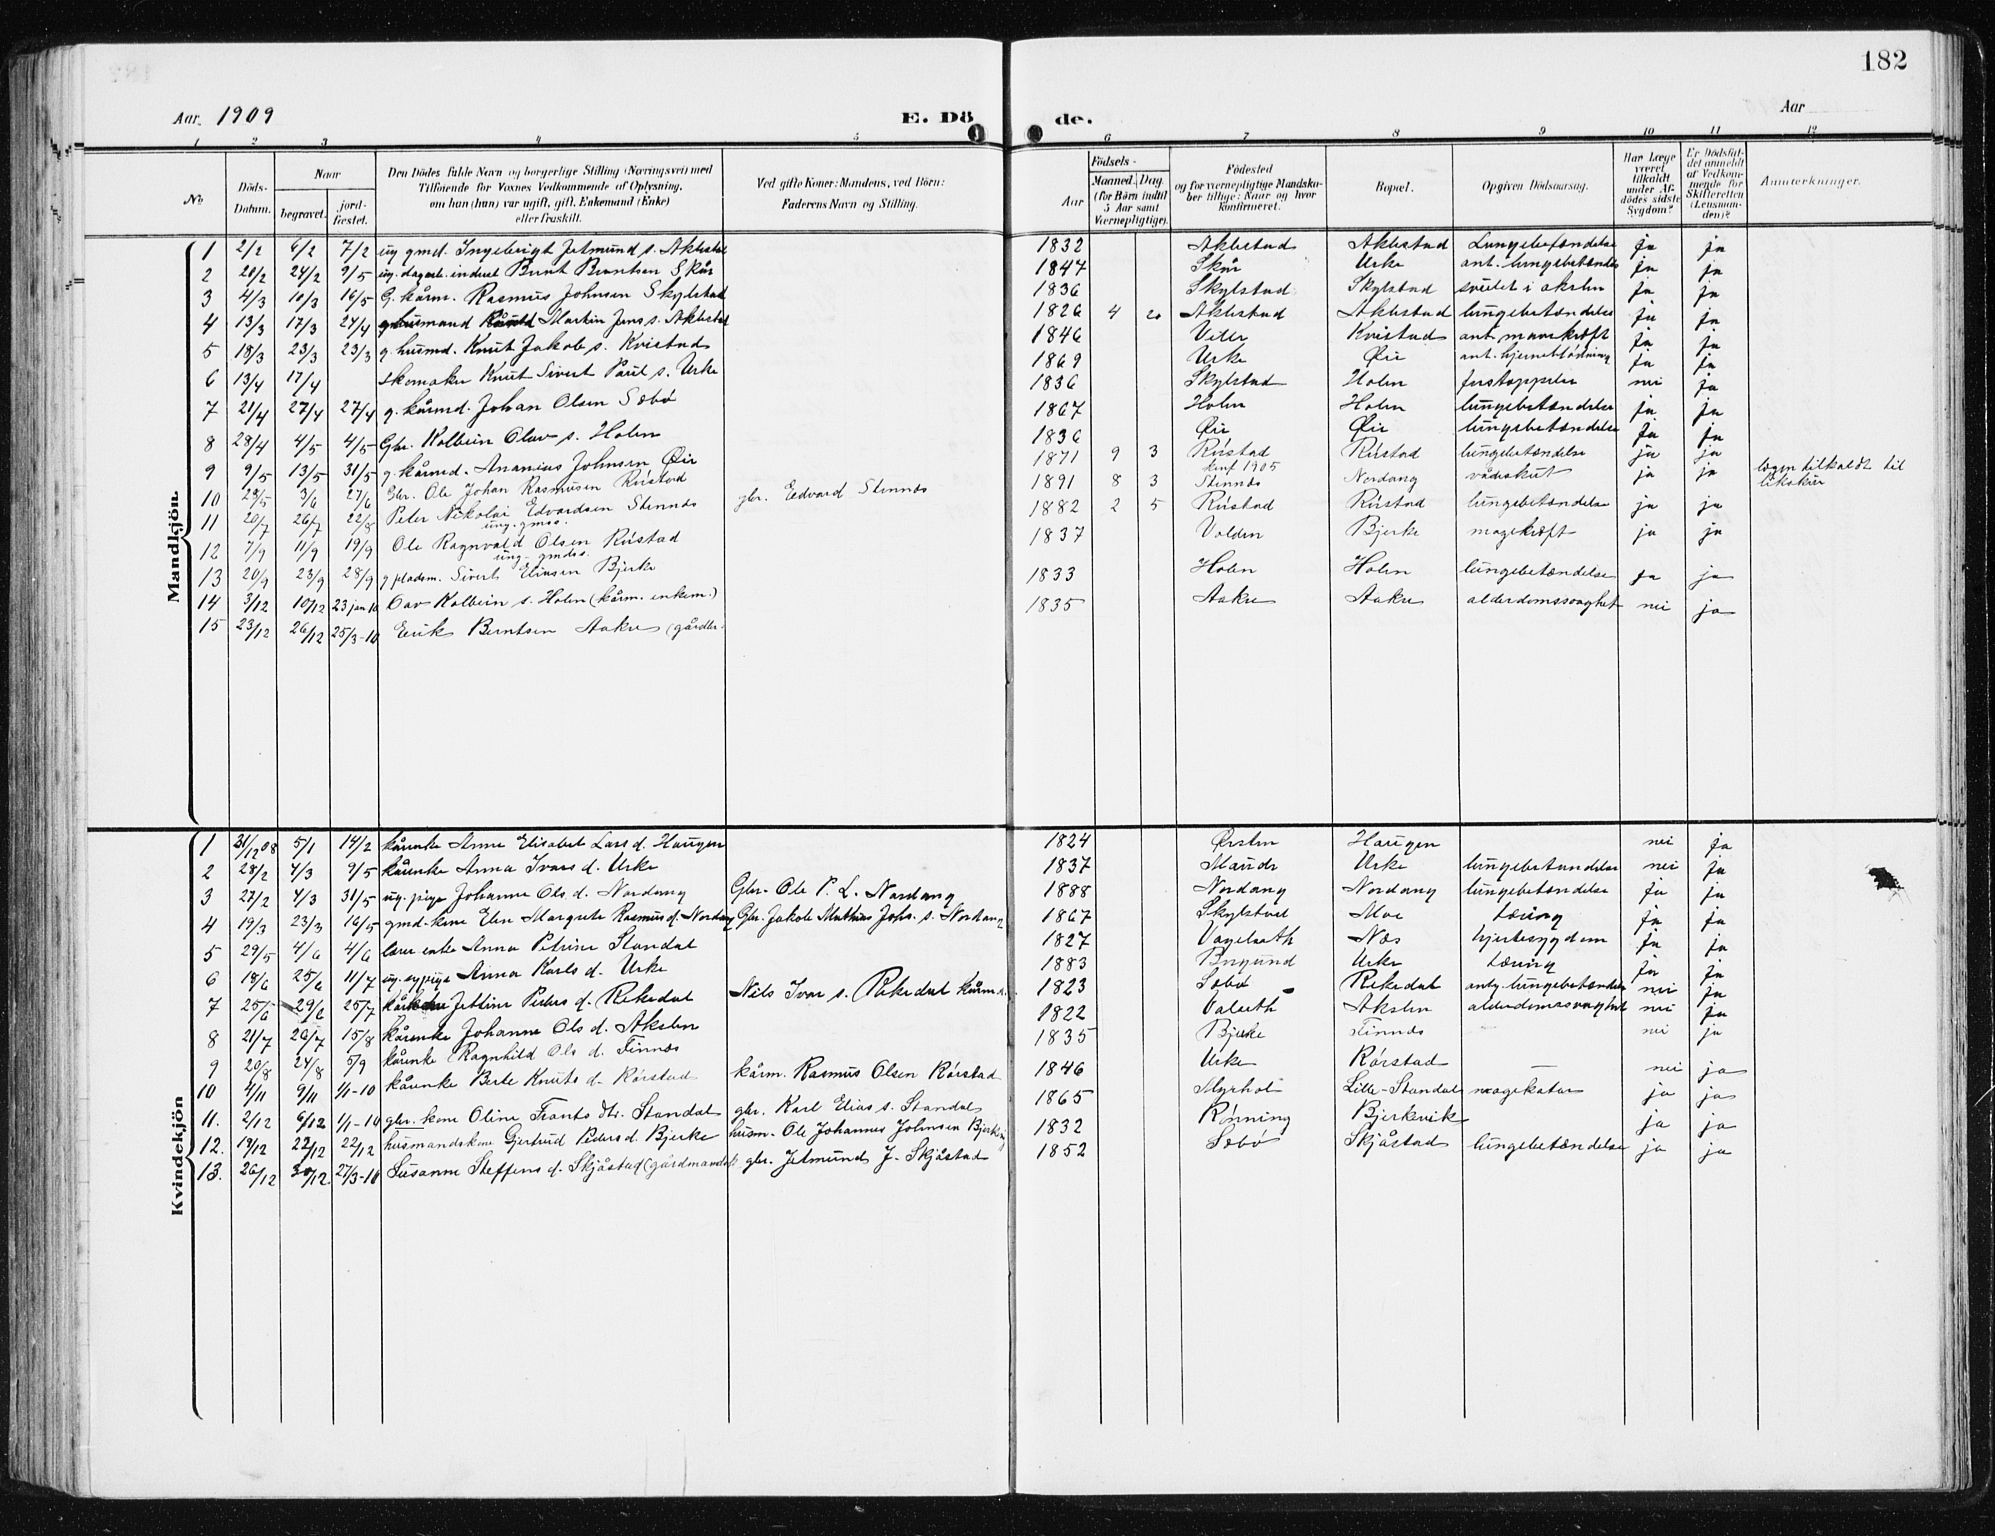 182
Aar. 1909
E. Dö
de.
Aar
1 2 3 4 5 6 7 8 9 10 11 12
No
Döds-Datum.
Naar
begravet.
jord-fæstet.
Den Dödes fulde Navn og borgerlige Stilling (Næringsvei) med
Tilföiende for Voxnes Vedkommende af Oplysning,
om han (hun) var ugift, gift, Enkemand (Enke)
eller fraskilt.
Ved gifte Koner: Mandens, ved Börn:
Faderens Navn og Stilling.
Födsels-
Aar
Maaned. Dag
(for Börn indtil
5 Aar samt
Værnepligtige).
Födested
og for værnepligtige Mandska-
ber tillige: Naar og hvor
konfirmeret.
Bopæl.
Opgiven Dödsaarsag.
Har Læge
været
tilkaldt
under Af-
dödes sidste
Sygdom?
Er Dödsfal-
det anmeldt
af Vedkom-
mende for
Skifteretten
(Lensman-
den)?
Anmærkninger.
Mandkjön.
1 2/2 6/2 7/2 ug gmd. Ingebrigt Jetmund s. Aklestad 1832 Aklestad Aklestad Lungebetændelse ja ja
2 20/2 24/2 9/5 ug. Bernt Berntsen Skår 1847 Skår Urke ant. lungebetændelse ja ja
3 4/3 10/3 16/5 G. kårm. Rasmus Johnsen Skylstad 1836 Skylstad Skylstad ja ja
4 13/3 17/3 24/4 Martin Jens s. Aklestad 1826 4 20 Aklestad Aklestad lungebetændelse ja ja
5 18/3 23/3 23/3 g. husmd. Knut Jakob s. Kvistad 1846 Kvistad ant. mavekræft ja ja
6 13/4 17/4 skomaker Knut Sivert Paul s. Urke 1869 Urke Øie ant. hjerneblødning ja ja
7 21/4 27/4 27/4 g. kårmd. Johan Olsen Sæbø 1836 Skylstad Holen forstoppelse nei ja
8 28/4 4/5 4/5 Gbr. Kolbein Olav s. Holen 1867 Holen Holen lungebetændelse ja ja
9 9/5 13/5 31/5 g. kårmd. Ananias Johnsen Øie 1836 Øie Øie lungebetændelse ja ja
10 29/5 3/6 27/6 Gbr. Ole Johan Rasmusen Rústad 1871 9 3 Rústad Rústad lungebetændelse ja ja
11 20/7 26/7 22/8 Peter Nikolai Edvardsen Stennes gbr. Edvard Stennes 1891 8 3 Stennes Nordang vådeskut ja ja lægen tilkaldt til
ung. gmss. konf 1905 likskúe
12 7/9 11/9 19/9 Ole Ragnvald Olsen Rústad 1882 2 5 Rústad Rústad lungebetændelse ja ja
ung. gmds s.
13 20/9 23/9 28/9 g pladsm. Sivert Eliasen Bjerke 1837 Volden Bjerke magekræft ja ja
14 3/12 10/12 23 jan 10 Oav Kolbein s. Holen (kårm. enkem.) 1833 Holen Holen lungebetændelse ja ja
15 23/12 26/12 25/3-10 Erik Berntsen Aakre (gårdbr. 1835 Aakre Aakre alderdomssvaghet nei ja
Kvindekjön
1 31/12 08 5/1 14/2 kårenke Anne Elisabet Lars d. Haugen 1824 Ørsten Haugen nei ja
2 28/2 4/3 9/5 kårenke Anna Ivars d. Urke 1837 Urke lungebetændelse nei ja
3 27/2 4/3 31/5 ug. pige Johanne Ols d. Nordang Gbr. Ole P. L. Nordang 1888 Nordang Nordang lungebetændelse ja ja
4 19/3 23/3 16/5 gmd. kone Elen Margrete Rasmus d. Nordang Gbr. Jakob Mathias Johs. s. Nordang 1867 Skylstad Moe tæring ja ja
5 29/5 4/6 4/6 lærer enke Anna Petrine Standal 1827 Næs hjertesygdom ja ja
6 18/6 25/6 11/7 ug. sypige Anna Karls d. Urke 1883 Borgund Urke tæring ja ja
7 25/6 29/6 25/7 Jettine Peders d. Rekedal Nils Ivar s. Rekedal kårm. 1823 Sæbø Rekedal lungebetændelse nei ja
8 21/7 26/7 15/8 kårenke Johanne Ols d. Akslen 1822 Akslen alderdomssvaghet nei ja
9 20/8 24/8 5/9 kårenke Ragnhild Ols d. Finnes 1835 Bjerke Finnes nei ja
10 4/11 9/11 1/1-10 kårenke Berte Knuts d. Rørstad kårm. Rasmus Olsen Rørstad 1846 Urke Rørstad — nei ja
11. 2/12 6/12 1/1-10 gbr. kone Oline Frants dtr. Standal gbr. Karl Elias s. Standal 1865 Myrhol Lille-Standal magekatar ja ja
12. 19/12 22/12 22/12 husmandskone Gjertrud Peders d. Bjerke husm. Ole Johannes Johnsen 1832 Rønning Bjerkevik ja ja
13. 26/12 30/12. 27/3-10 Susanne Steffens d. Skjåstad (gårdmandsk. gbr. Jetmund J. Skjåstad 1852 Sæbø Skjåstad lungebetændelse ja ja